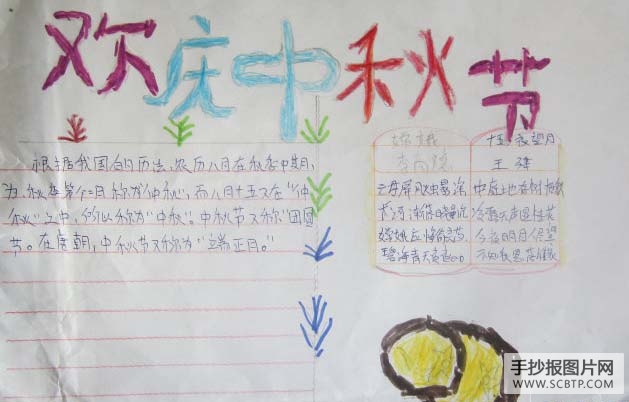 欢庆中秋节
根据我国的历法,农历八月在秋季中期,
为秋季第二月称为"仲秋",而八月十五又在"仲
秋"之中,所以称为"中秋"。中秋节又称"团圆
节。在唐朝,中秋节又称为"端正月。"
嫦娥
李商隐
云母屏风烛影深
长河渐落晓星沉
嫦娥应悔偷灵药
碧海青天夜夜心
十五夜望月
王建
中庭地白树栖鸦
冷露无声湿桂花
今夜明月人尽望
不知秋思落谁家
手抄报图片网
WWW.SCBTP.COM